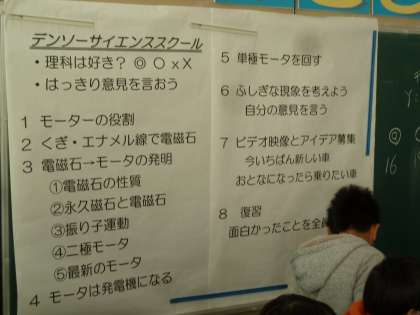 デンソーサイエンススクール
・理科は好き? ◎ ○ x X
・はっきり意見を言おう
1 モーターの役割
2 くぎ・エナメル線で電磁石
3 電磁石→モータの発明
①電磁石の性質
②永久磁石と電磁石
③振り子運動
④二極モータ
⑤最新のモータ
4 モータは発電機になる
5 単極モータを回す
6 ふしぎな現象を考えよう
自分の意見を言う
7 ビデオ映像とアイデア募集
今いちばん新しい車
おとなになったら乗りたい車
8 復習
面白かったことを全
◎
16